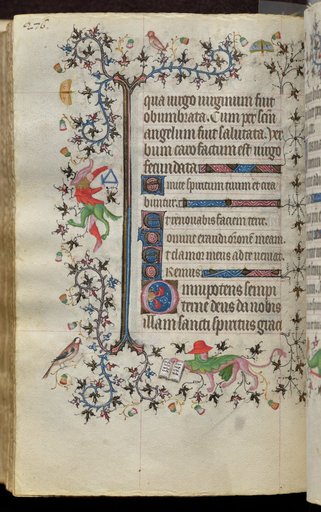 276.
qua virgo virginum fuit
obumbrata. Cum per scm
angelum fuit salutata. Ver
bum caro factum est virgo
fecundata
Emitte spiritum tuum et crea
buntur.
Et renovabis faciem terre.
Domine exaudi orone meam.
Et clamor meus ad te veniat.
Oremus
Omnipotens sempi
terne deus da nobis
illam sancti spiritus graci